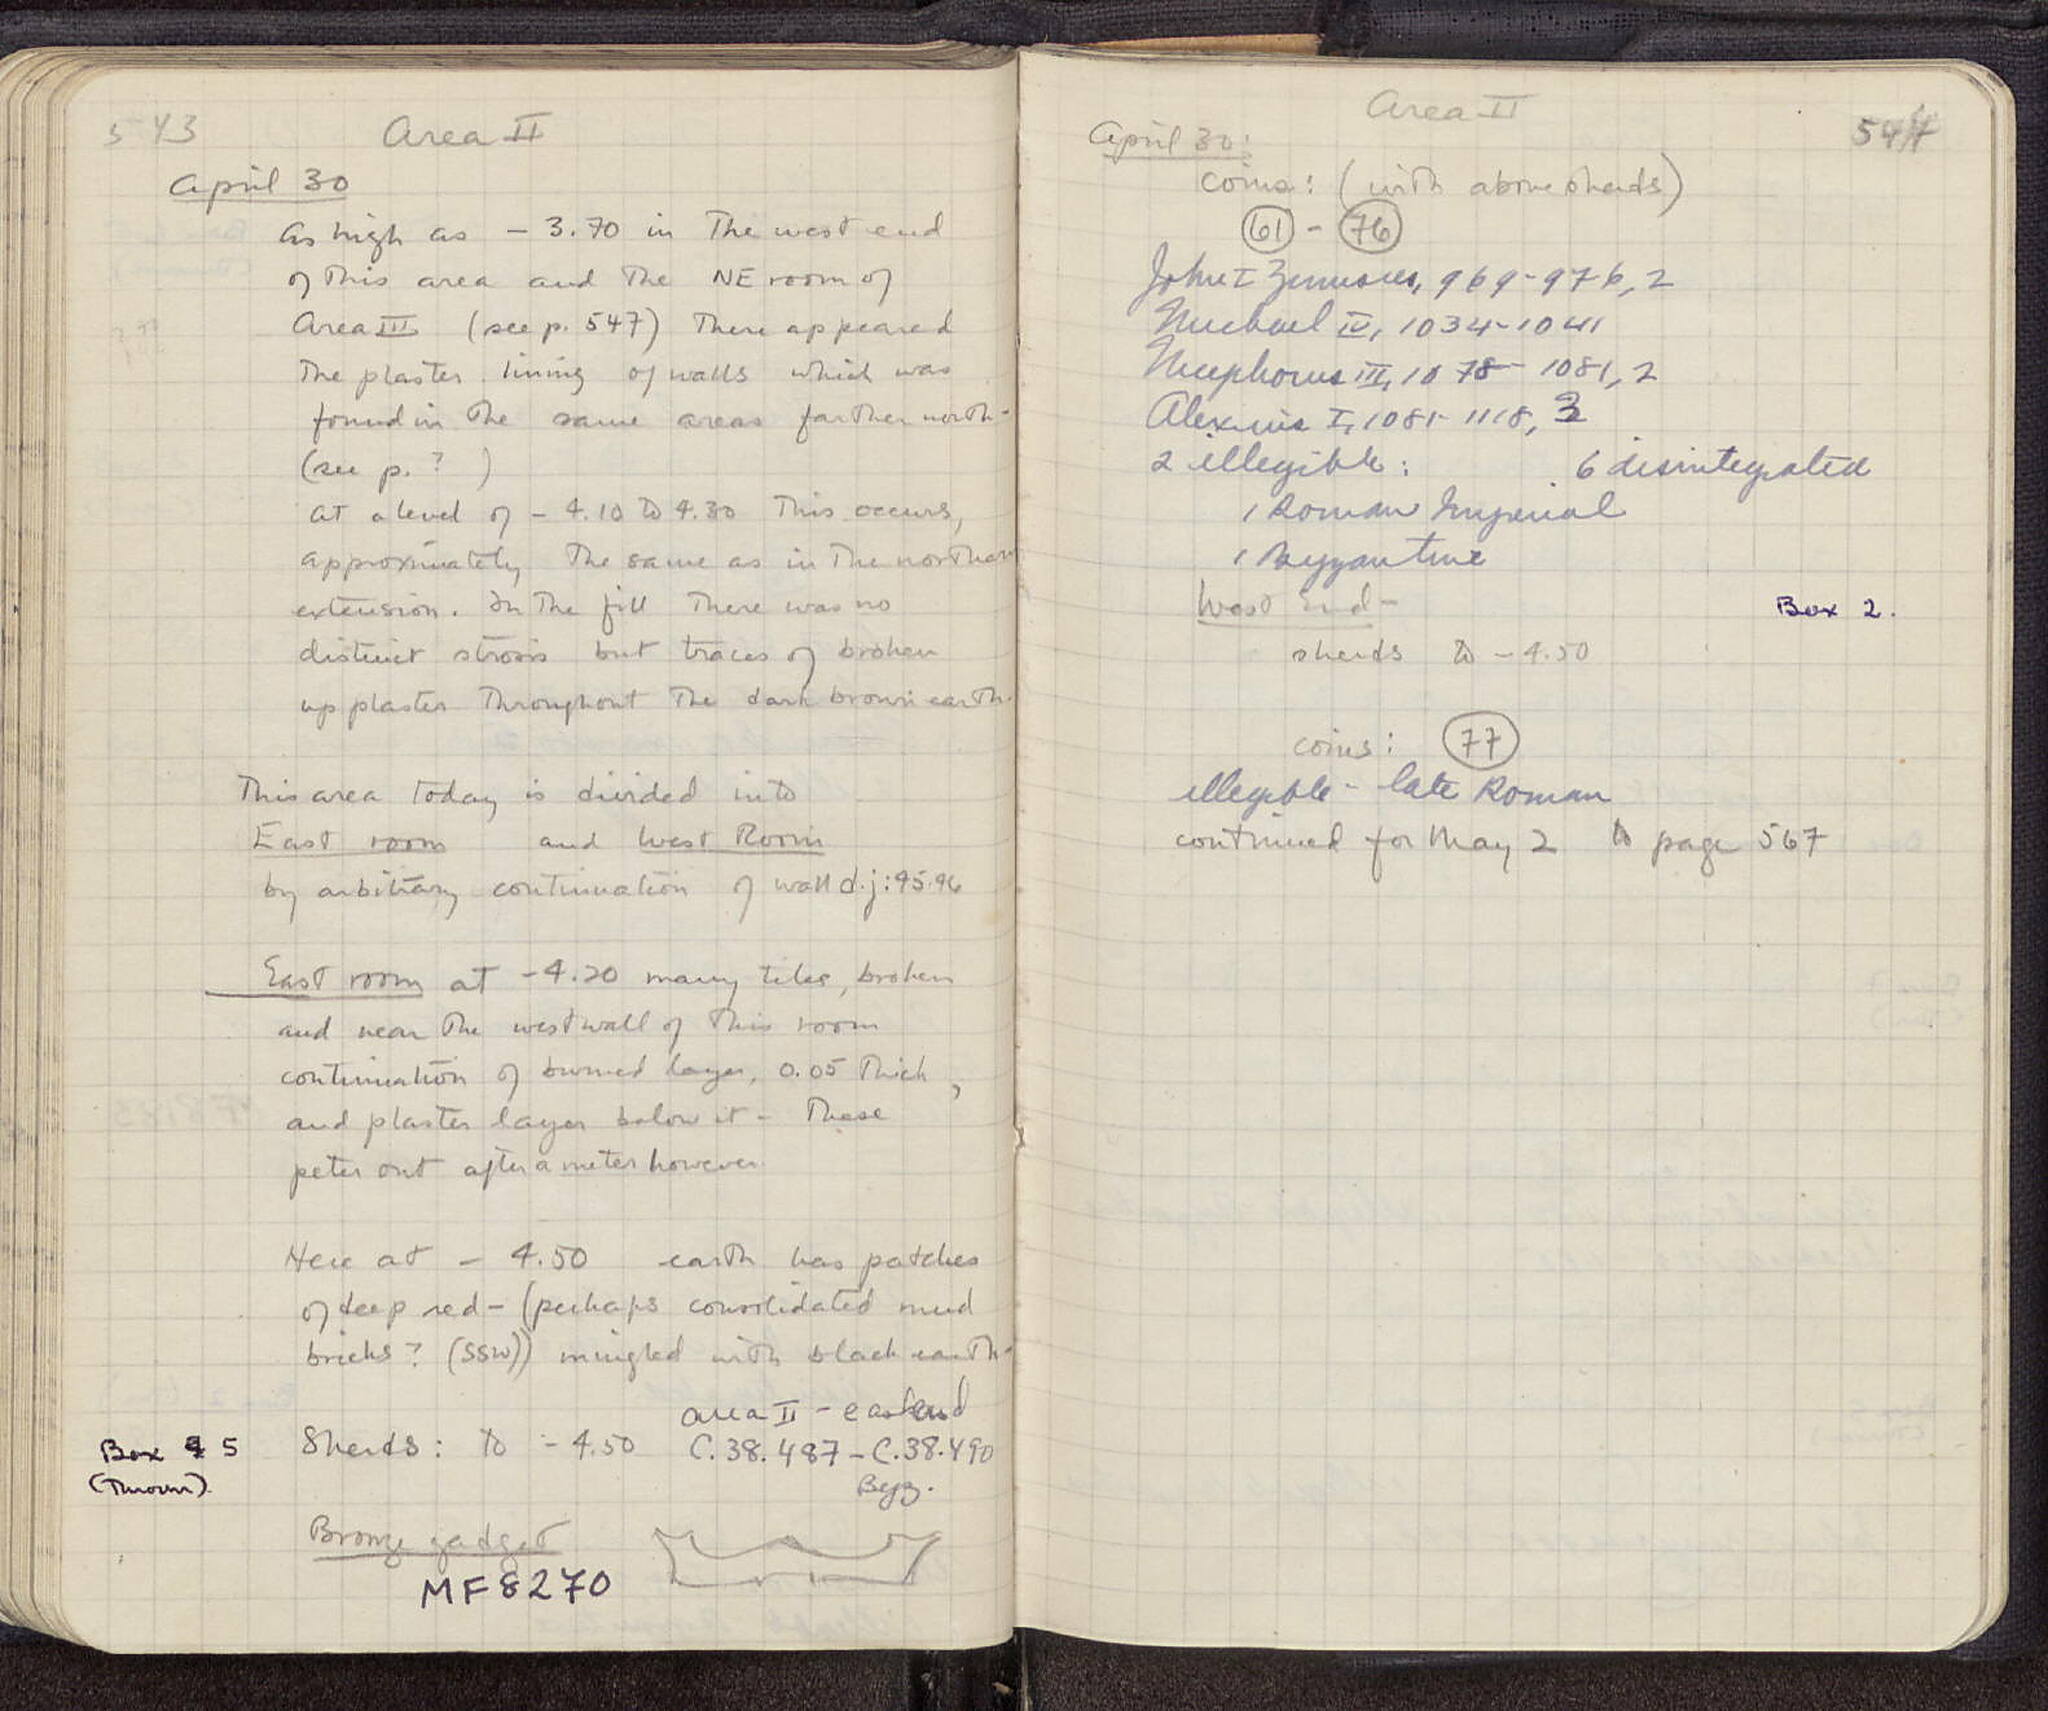 543
Area II
April 30
As high as - 3.70 in the west end
of this area and the NE room of
Area III (see p. 547) there appeared
the plaster lining of walls which was
found in the same areas farther north-
(see p. ? )
At a level of - 4.10 to 4.30 this occurs,
approximately the same as in the northern
extension. In the fill there was no
distinct strosis but traces of broken
up plaster throughout the dark brown earth.
This area today is divided into
East room and West Room
by arbitrary continuation of wall d.j:95.96
East room at -4.20 many tiles, broken
and near the west wall of this room
continuation of burned layer, 0.05 thick,
and plaster layer below it - These
peter out after a meter however.
Here at - 4.50 earth has patches
of deep red - (perhaps consolidated mud
bricks? (SSW)) mingled with black earth-
Area II - east end
Box 5
(Thrown)
Sherds: to - 4.50 C.38.487 - C.38.490
Byz.
Bronze gadget
MF 8270
Area II
547
April 30:
coins: (with above sherds)
61 - 76
John I Zimisces, 969-976, 2
Michael IV, 1034-1041
Nicephorus III, 1078-1081, 2
Alexius I, 1081-1118, 3
2 illegible: 6 disintegrated
1 Roman Imperial
1 Byzantine
West End - Box 2.
sherds to - 4.50
coins: 77
illegible - late Roman
continued for May 2 to page 567